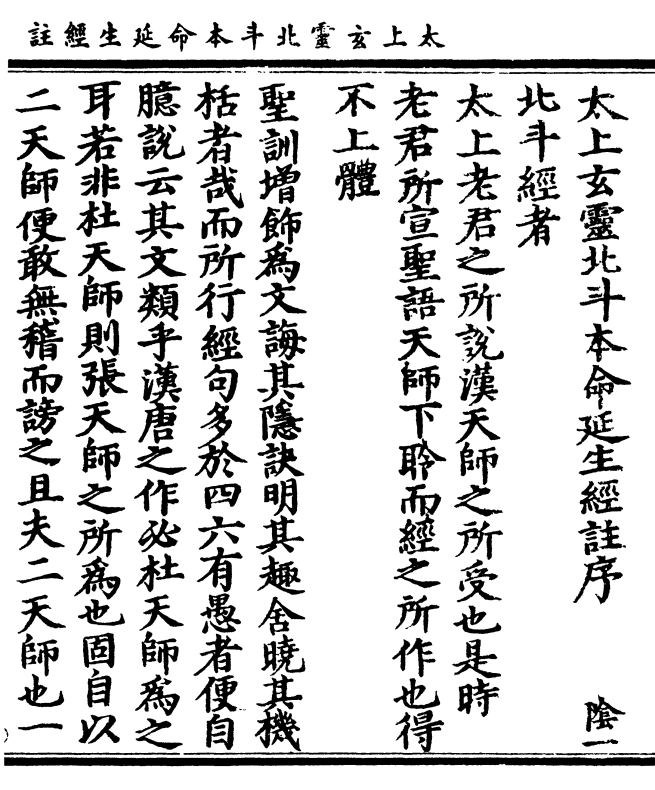 太上玄靈北斗本命延生經註
太上玄靈北斗本命延生經註序　陰一
北斗經者
太上老君之所說漢天師之所受也是時
老君所宣聖語天師下聆而經之所作也得
不上體
聖訓增飾為文誨其隱訣明其趣舍曉其機
栝者哉而所行經句多於四六有愚者便自
臆說云其文類乎漢唐之作必杜天師為之
耳若非杜天師則張天師之所為也固自以
二天師便敢無稽而謗之且夫二天師也一